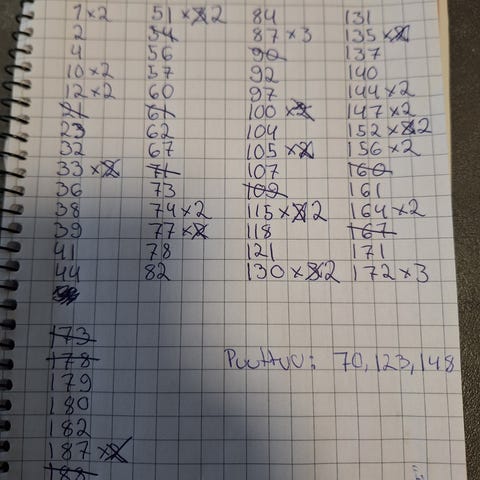 1×2 51 ×2 84 131
2 54 87 ×3 135 ×2
4 56 90 137
10 ×2 57 92 140
12 ×2 60 97 144 ×2
21 61 100 ×2 147 ×2
23 62 104 152 ×2
32 67 105 ×2 156 ×2
33 ×2 71 107 160
36 73 109 161
38 74 ×2 115 ×2 164 ×2
39 77 ×2 118 167
41 78 121 171
44 82 130 ×2 172 ×3
173
178 Puuttuu: 70, 123, 148
179
180
182
187 ×2
188